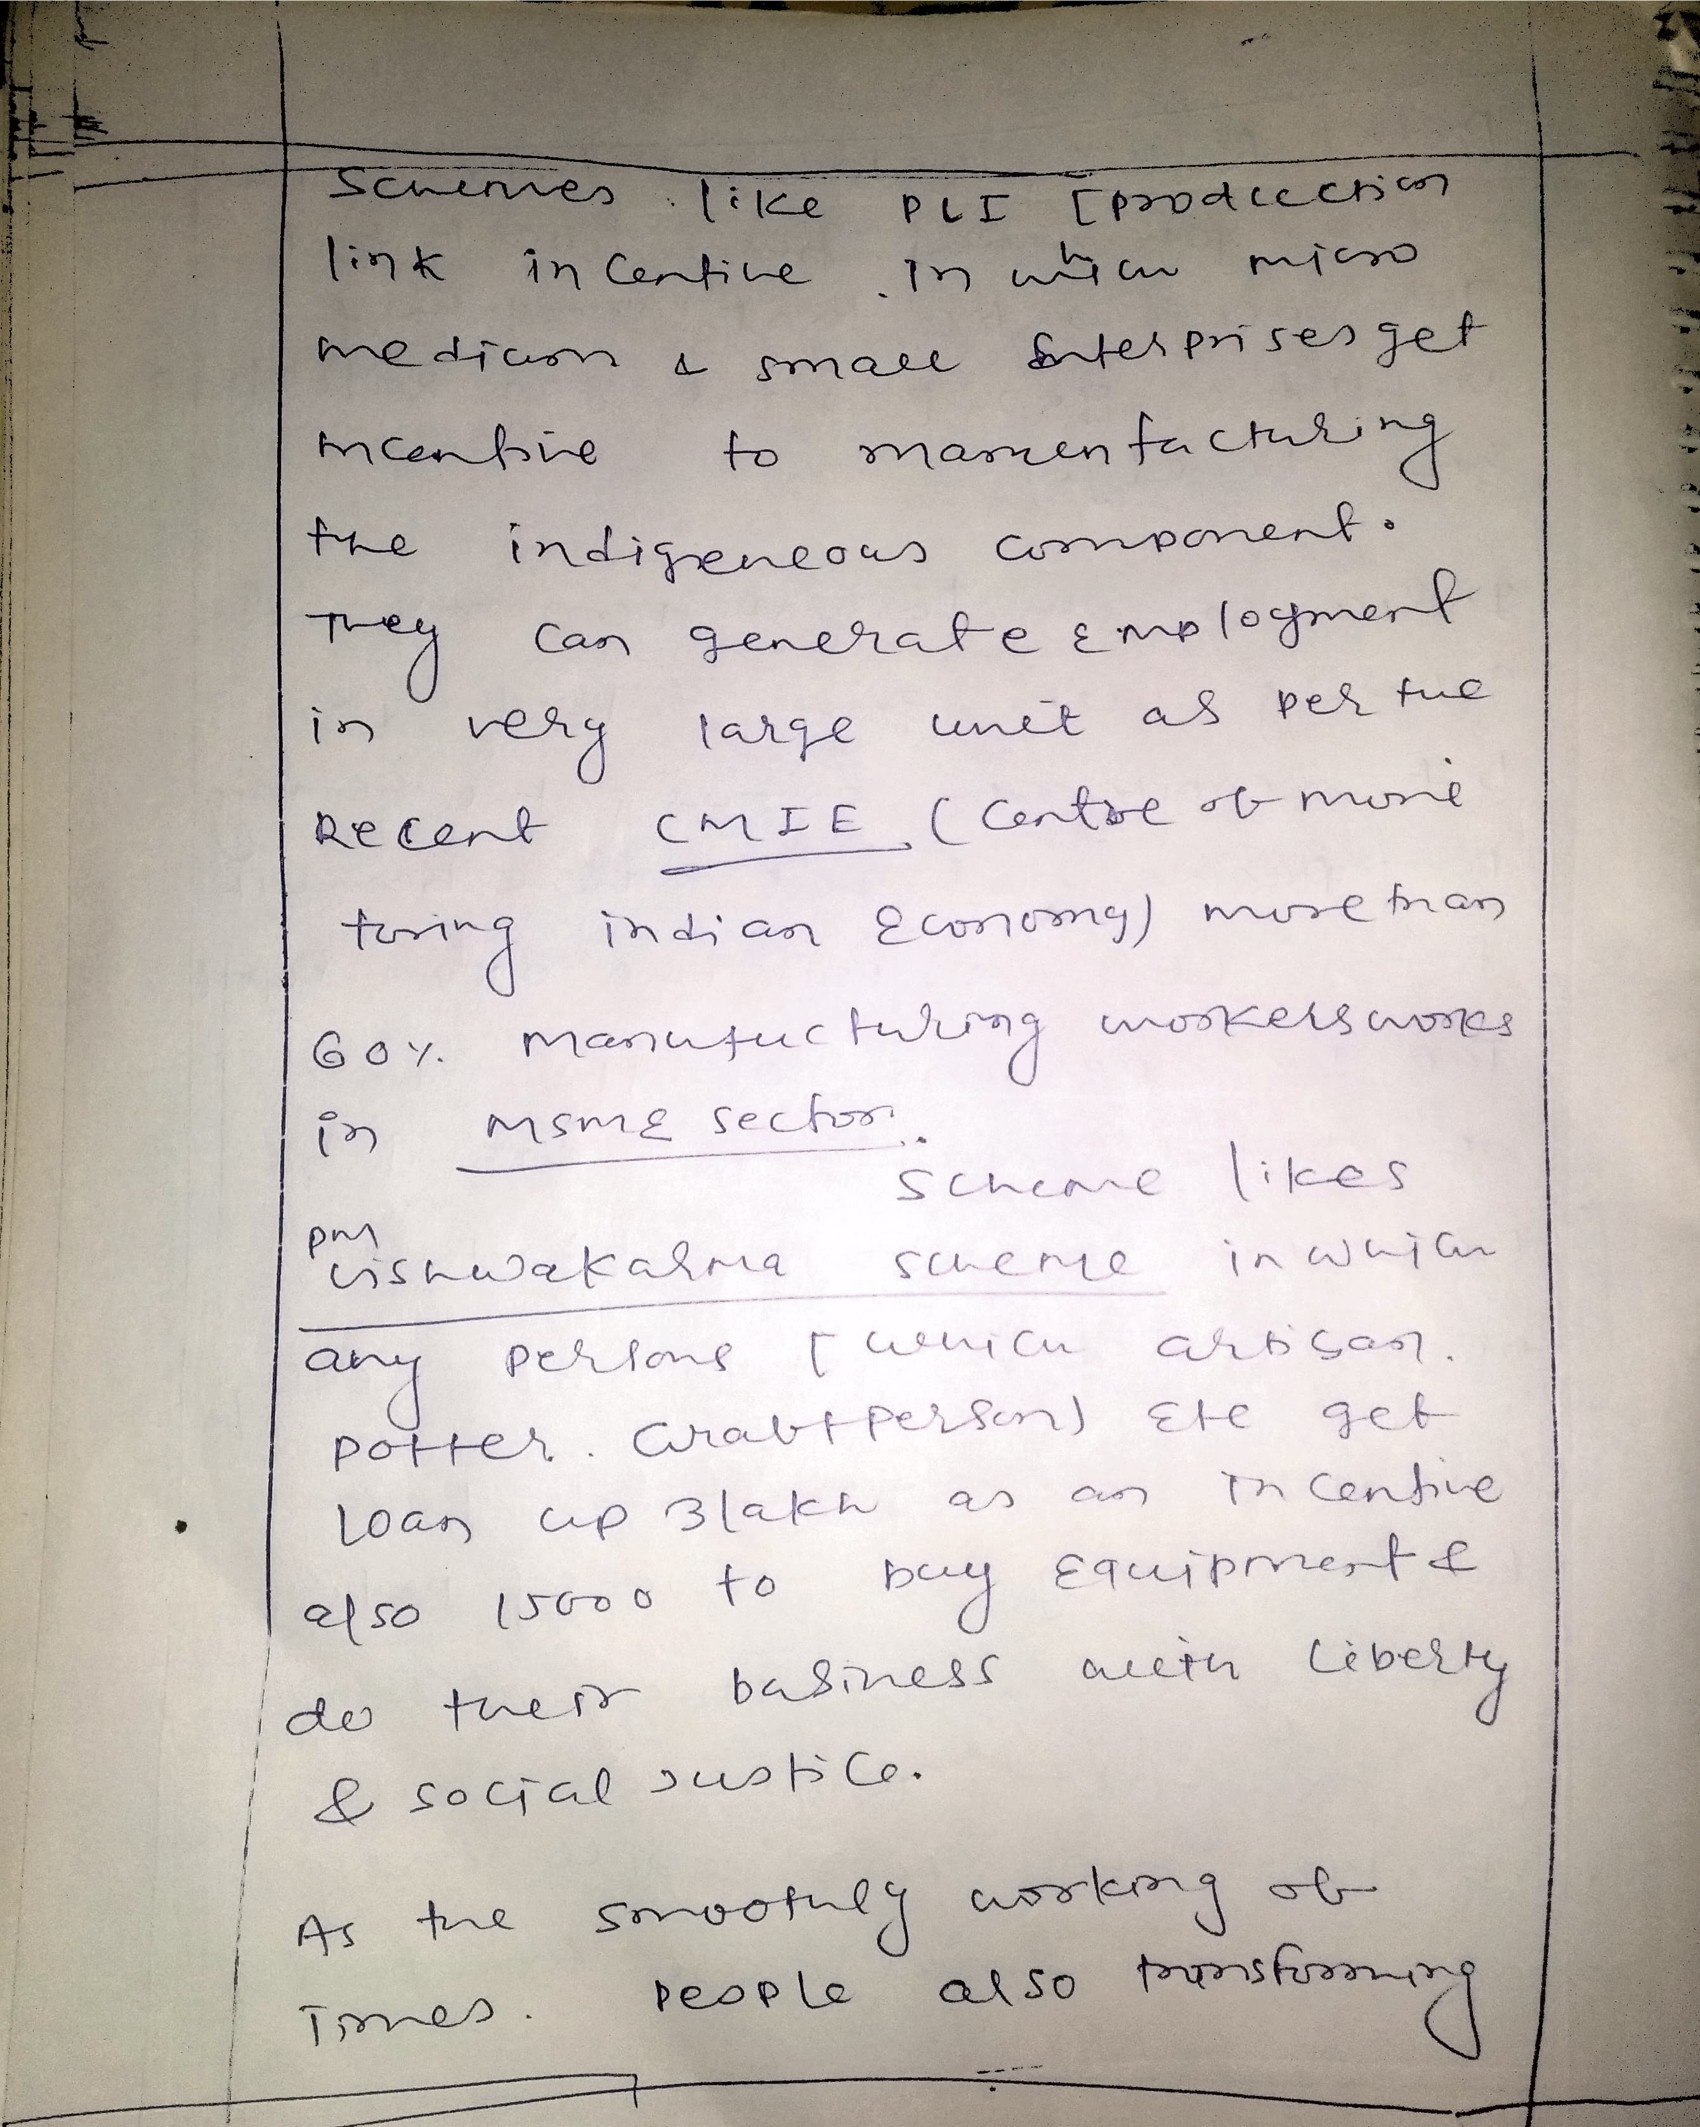 Schemes like PLI [production
link incentive. In which micro
medium & small Enterprises get
incentive to manuenfacturing
the indigeneous component.
They can generate Employment
in very large unit as per the
Recent CMIE (Centre of moni
toring indian Economy) more than
60% manufucturing workers works
in MSME sector.
Scheme likes
PM vishwakarma scheme in which
any persons [which artisan.
potter. craftperson) Etc get
loan up 3lakh as an incentive
also 15000 to buy Equipment &
do their business with liberty
& social justice.
As the smoothly working of
Times. people also transforming